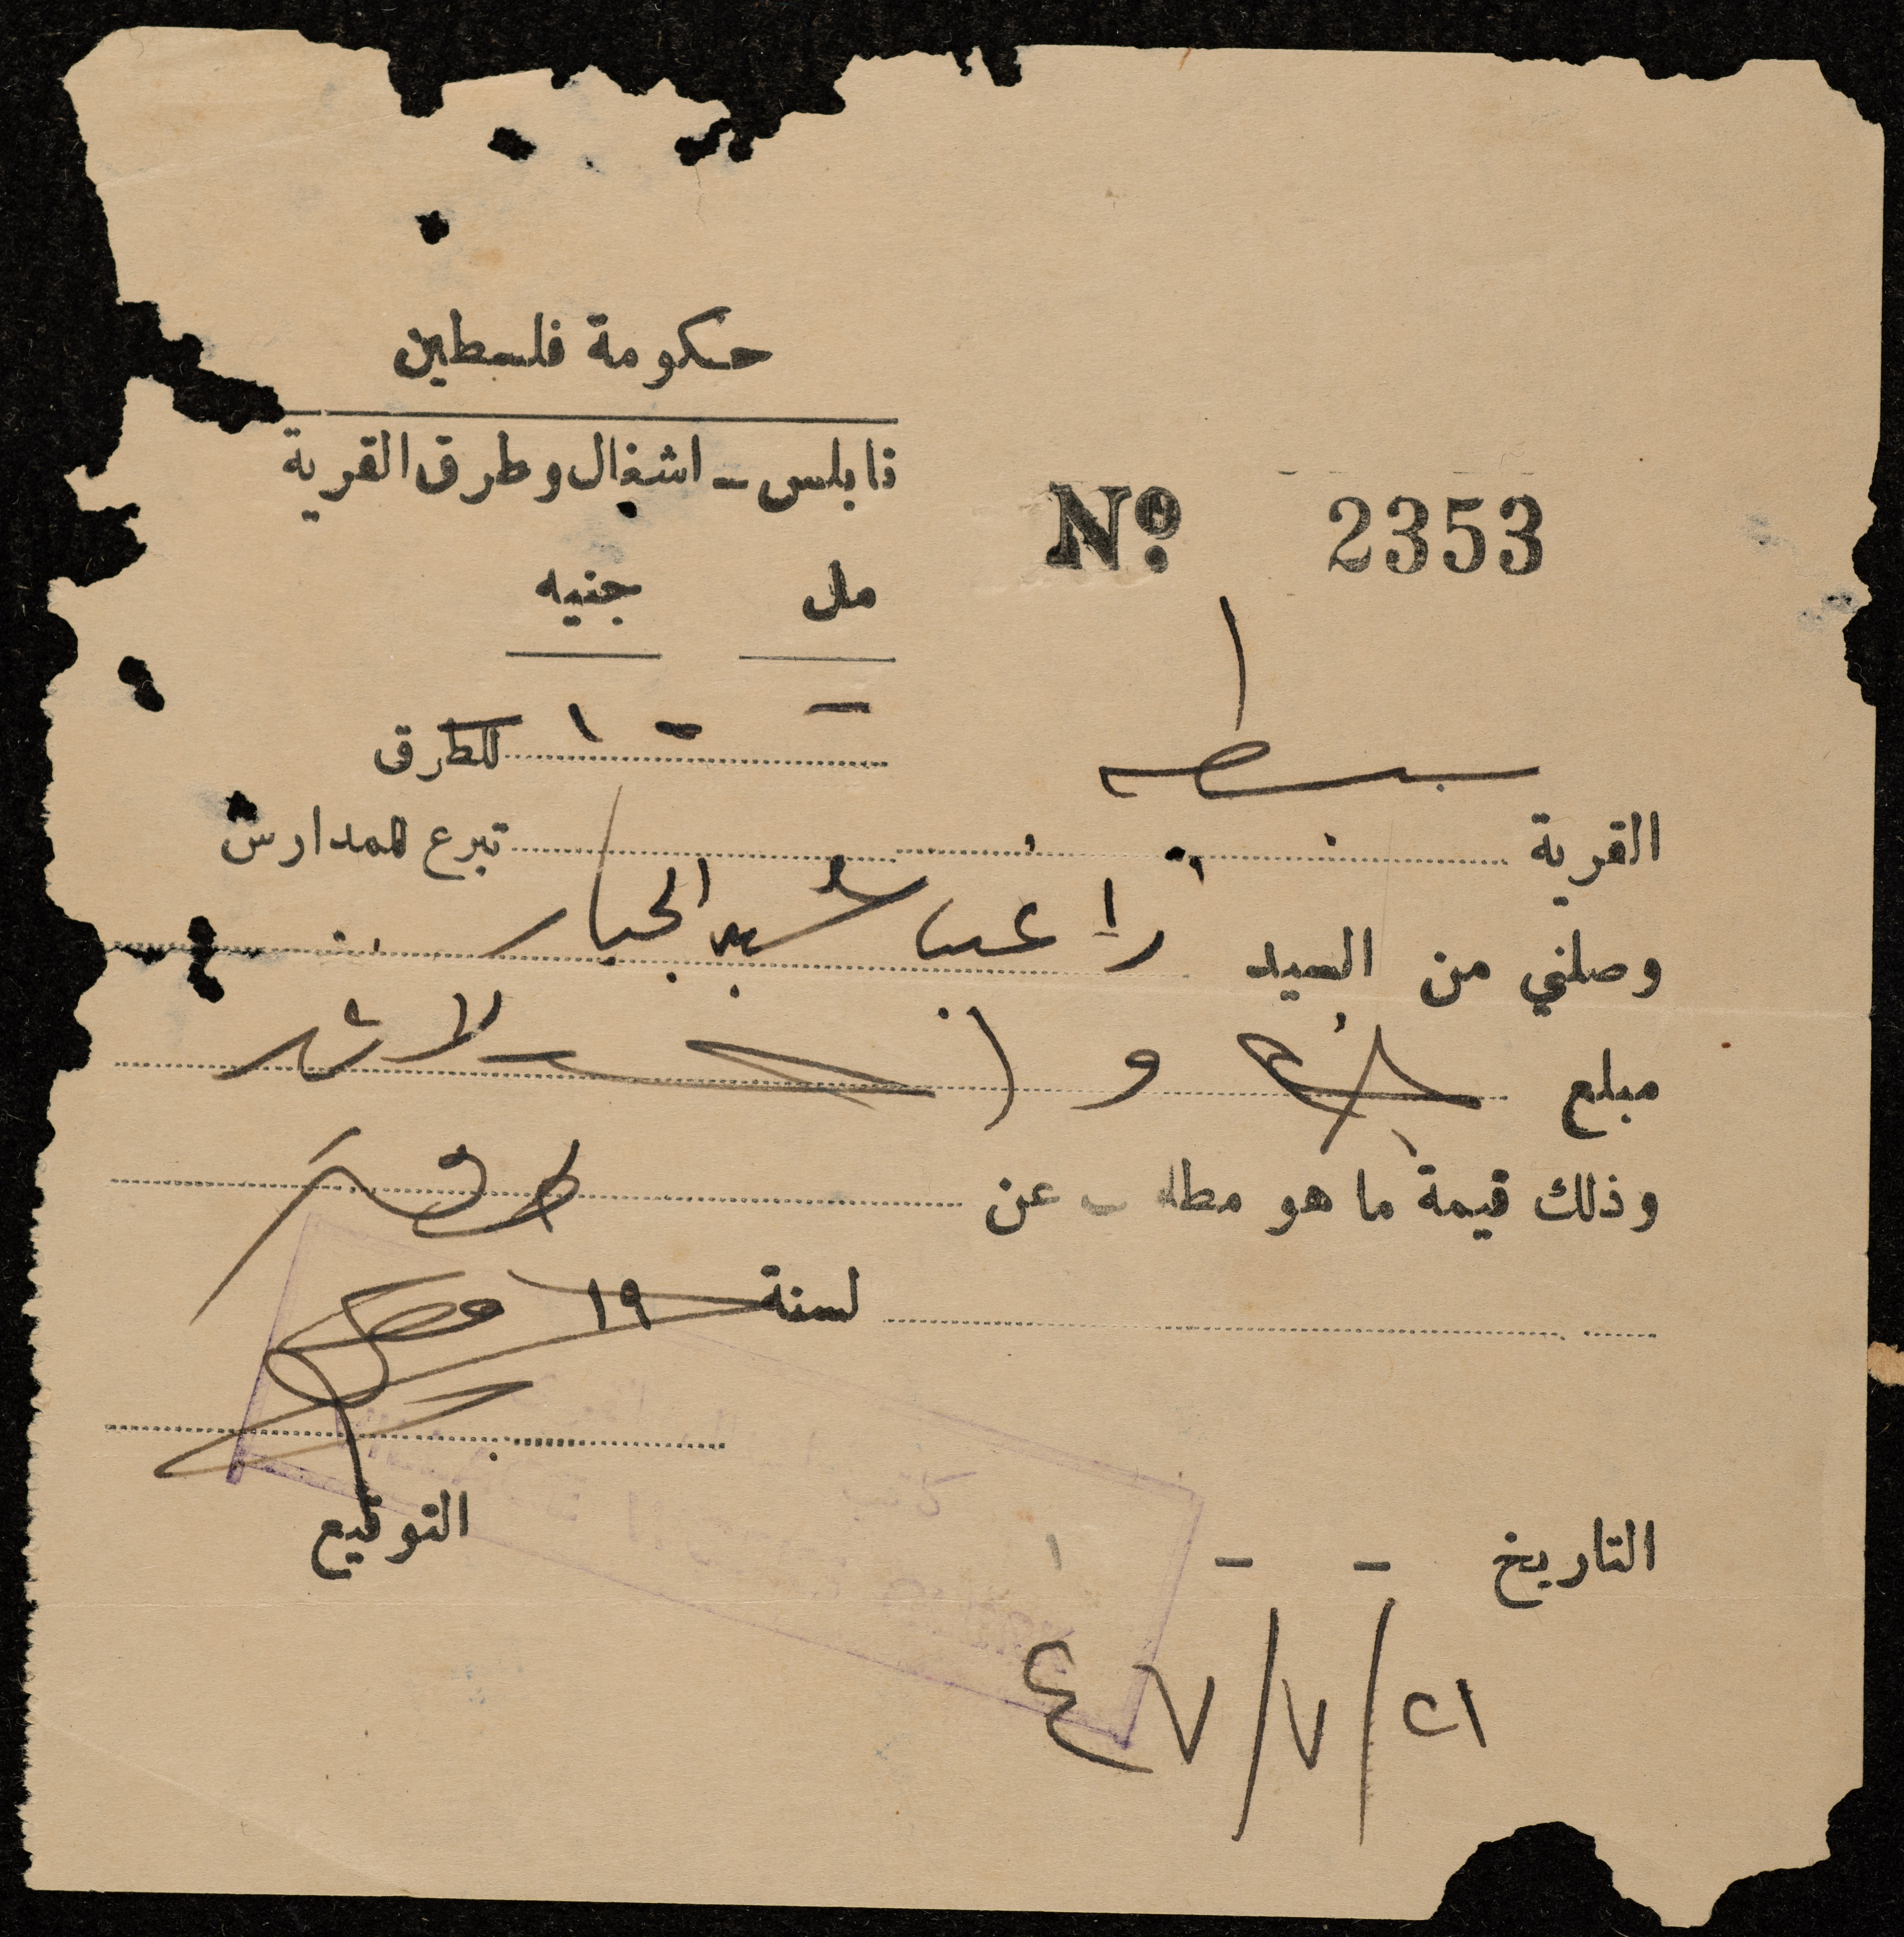 حكومة فلسطين
نابلس - اشغال وطرق القرية
Nº 2353
مل جنيه
- - ١ للطرق
القرية سبسطيه
تبرع للمدارس
وصلني من السيد راغب عبد الجبار
مبلغ جنيه واحد لا غير
وذلك قيمة ما هو مطلوب عن
لسنة ١٩
التوقيع
التاريخ - - ١
٢١/٧/٤٧